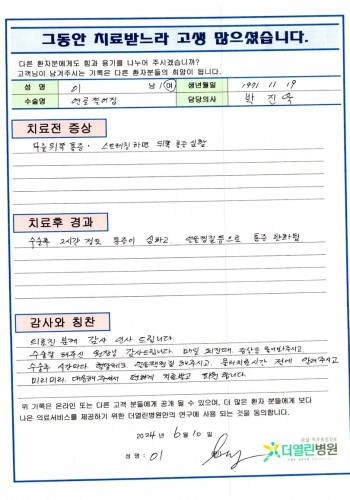 그동안 치료받느라 고생 많으셨습니다.
다른 환자분에게도 힘과 용기를 나누어 주시겠습니까?
고객님이 남겨주시는 기록은 다른 환자분들의 희망이 됩니다.
성 명 이 남 / 여 생년월일 1971 11 19
수술명 연골 찢어짐 담당의사 박 진욱
치료전 증상
다음 뒤쪽 통증. 스트레칭하면 뒤쪽 통증 심함
치료후 경과
수술후 2시간 정도 통증이 심하고 통증 완화됨
감사와 칭찬
의료진 분께 감사 인사 드립니다.
수술을 해주신 원장님 감사드립니다. 매일 회진때 물어봐주시고.
수술후 시간마다 해주시고. 물리치료시간 전에 알려주시고
미리미리 대응해주셔서 편하게 치료받고 퇴원합니다.
위 기록은 온라인 또는 다른 고객 분들에게 공개 될 수 있으며, 더 많은 환자 분들에게 보다
나은 의료서비스를 제공하기 위한 더열린병원만의 연구에 사용 되는 것을 동의합니다.
2024 년 6 월 10 일
성 명 : 이
더열린병원